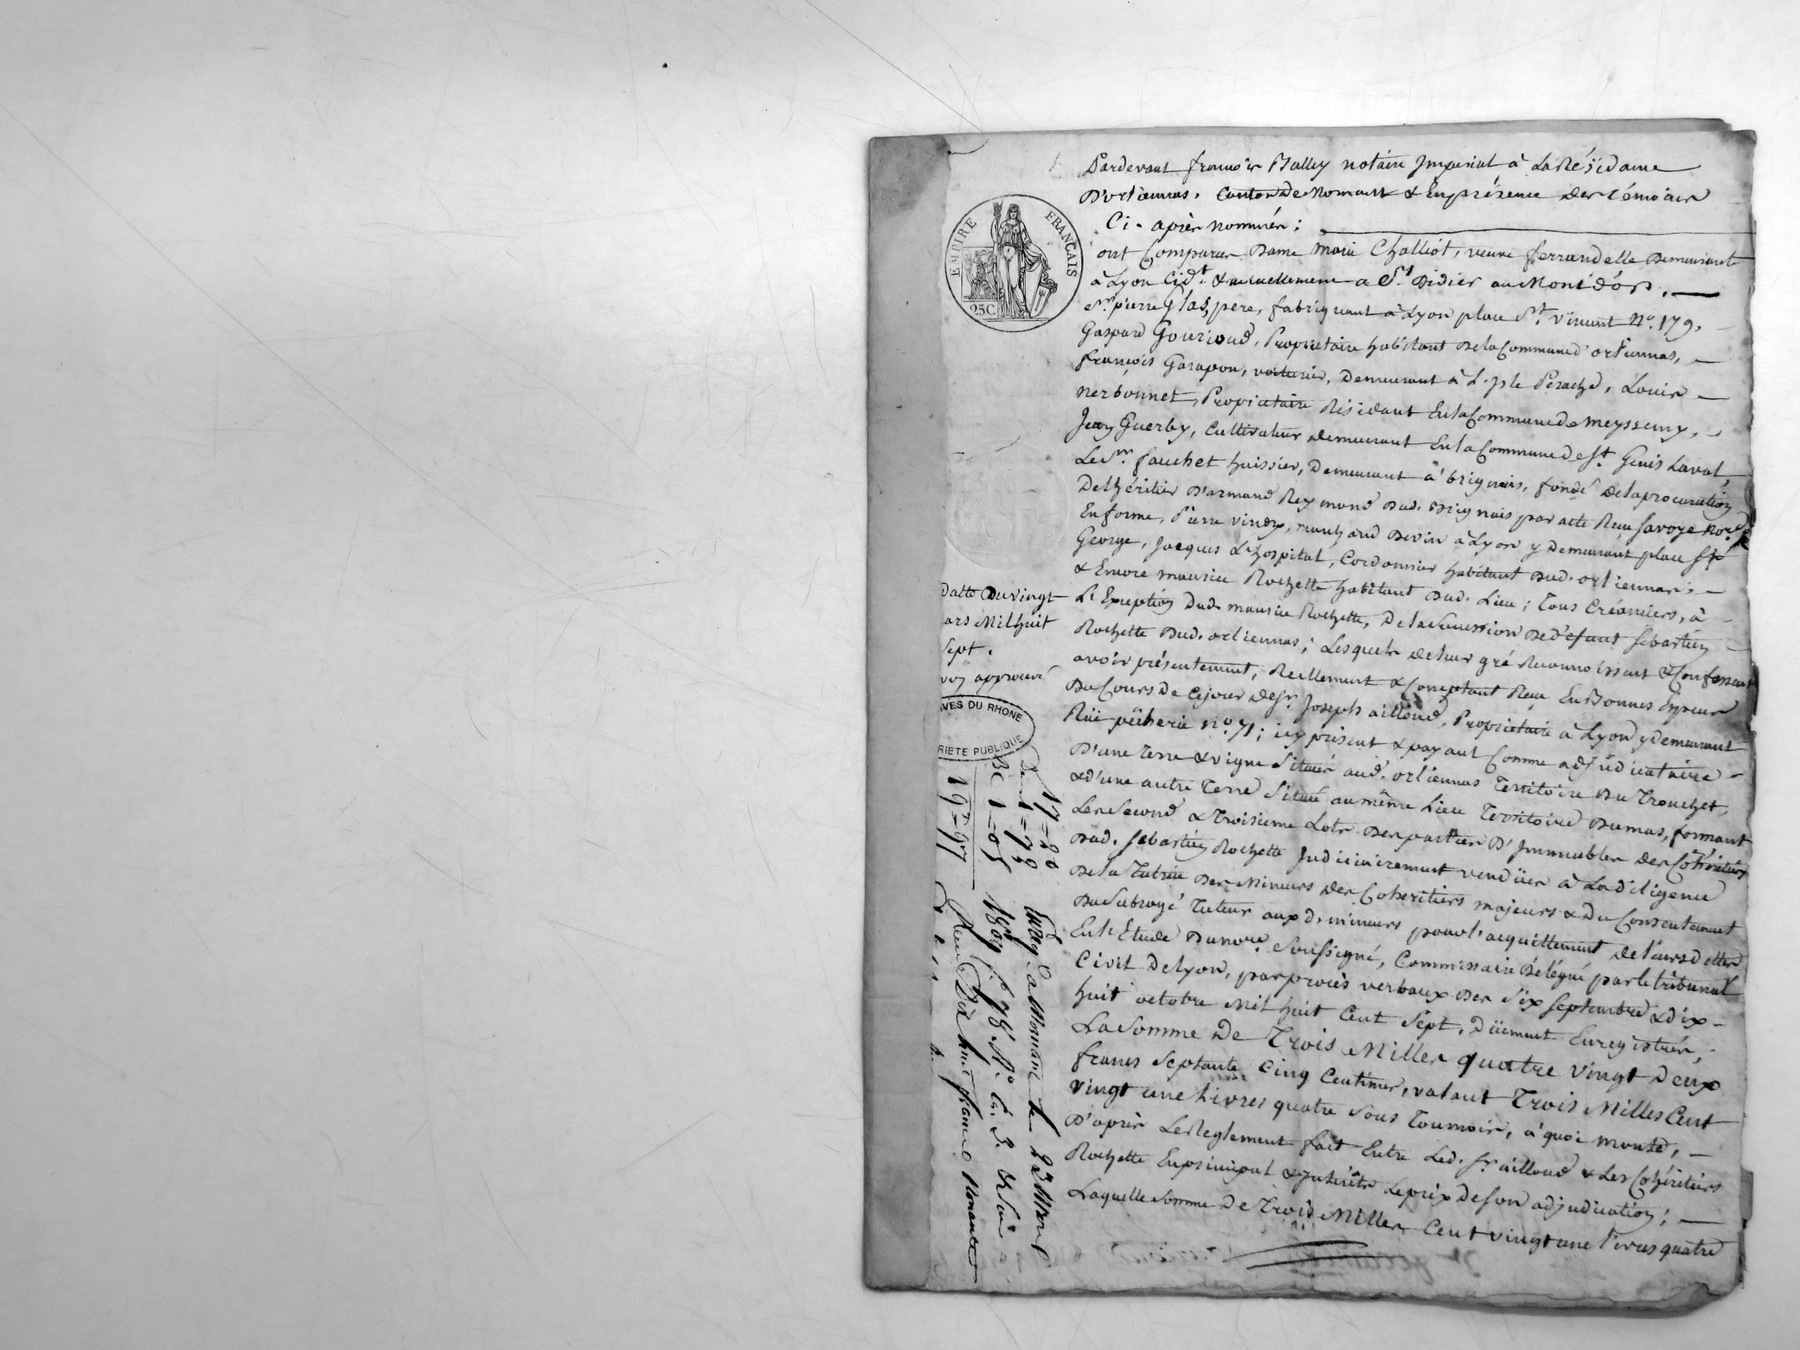 Pardevant françois Balley notaire Imperial à La Résidence
D'orliennas, Canton de Mornant & En présence des témoins
Ci-après nommés;
EMPIRE FRANÇAIS
25C.
ont Comparu Dame marie Challiot, veuve ferrandelle Demeurante
à Lyon Cidt. & actuellement a St. Didier au Montdór,
Sr. pierre Glas, pere, fabriquant à Lyon place St. vincent No. 179,
Gaspard Gourioud, Propriétaire habitant De la Commune d'orliennas,
françois Garapon, voiturier, Demeurant à Perache, Louis
nerbonnet, Propriétaire Résidant En la Commune de meyssemy,
Jean Guerby, Cultivateur demeurant En la Commune de St. Genis Laval,
Le Sr. fauchet huissier, Demeurant à brignais, fondé de la procuration
De l'héritier D'armand Reymond Dud. brignais par acte Reçu Savoye nore.
En forme, Pierre vindry, marchand De vin à Lyon y Demeurant place St.
George, Jacques L'hospital, Cordonnier habitant Dud. orliennas,
& Encore maurice Rochette habitant Dud. Lieu; Tous Créanciers, à
L'Exception Dud. maurice Rochette, De la Succession De défunt Sébastien
Rochette Dud. orliennas; Lesquels de leur gré Reconnoissent & Confessent
avoir présentement, Réellement & Comptant Reçu En Bonnes Espèces
Du Cours de Cejour de Sr. Joseph ailloud, Propriétaire à Lyon y demeurant
Rüe pêcherie no. 71; icy présent & payant Comme adjudicataire
D'une Terre & vigne Située aud. orliennas Territoire Du Trouchet,
& d'une autre Terre Située au même Lieu Territoire Dumas, formant
Les Second & Troisieme Lots Des parties D'Immeubles des Cohéritiers
Dud. Sébastien Rochette Judiciairement vendües à La diligence
De la Tutrice Des Mineurs des Cohéritiers majeurs & Du Consentement
Du Subrogé Tuteur auxd. mineurs pour l'acquittement de leurs dettes
En l'Etude Du nore. Soussigné, Commissaire Délégué par le tribunal
Civil de Lyon, par procès verbaux Des Six Septembre & dix-
huit octobre Mil huit Cent Sept, Düement Enregistrés,
La Somme De Trois Milles quatre vingt Deux
francs Septante Cinq Centimes, valant Trois Milles Cent
Vingt une Livres quatre Sous Tournois, à quoi monte,
D'après Le Reglement fait Entre Led. Sr. ailloud & Les Cohéritiers
Rochette En principal & Intérêts Le prix De Son adjudication;
Laquelle Somme De Trois Milles Cent vingt une livres quatre
Datte Du vingt
ars Mil huit
Sept.
approuvé
VES DU RHONE
RIETE PUBLIQUE